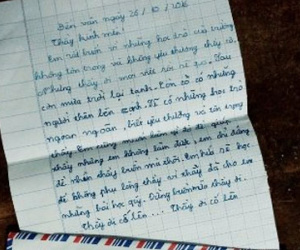 Bến văn ngày 20/10/2016
Thầy kính mến!
Em rất buồn vì những học trò của trường
không tôn trọng và không yêu thương thầy cô,
thầy ơi mọi việc rồi sẽ qua. Sau
cơn mưa trời lại sáng. Còn có những
người thân bên cạnh. Vì có những học trò
ngoan ngoãn, biết yêu thương và tôn trọng
thầy. Em cũng muốn làm gì đó để giúp
thầy nhưng em không làm được, em chỉ đứng
để nhìn thầy buồn mà thôi. Em hứa sẽ học
để không phụ lòng thầy vì thầy đã cho em
những bài học quý. Đừng buồn nữa thầy ơi.
Thầy ơi cố lên... Thầy ơi cố lên